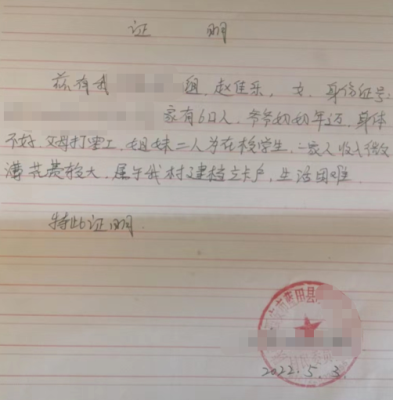 证 明
兹有我 组,赵佳乐,女,身份证号:
家有6口人,爷爷奶奶年迈,身体
不好,父母打零工,姐妹二人均在校学生,一家人收入微
薄花费较大,属于我村建档立卡户,生活困难
特此证明
2022.5.3